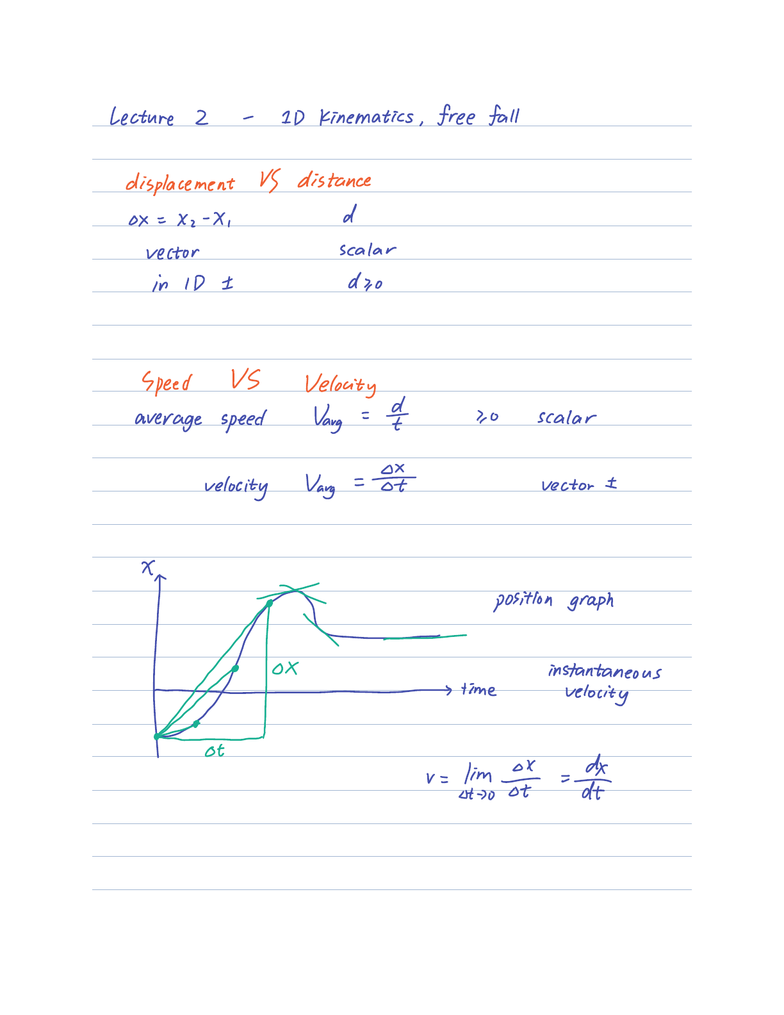 Lecture 2 - 1D Kinematics, free fall
displacement VS distance
Δx = x₂ - x₁ d
vector scalar
in 1D ± d ⩾ 0
Speed VS Velocity
average speed Vavg = d/t ⩾0 scalar
velocity Vavg = Δx/Δt vector ±
x
position graph
Δx
instantaneous
time velocity
Δt
v = lim Δt→0 Δx/Δt = dx/dt